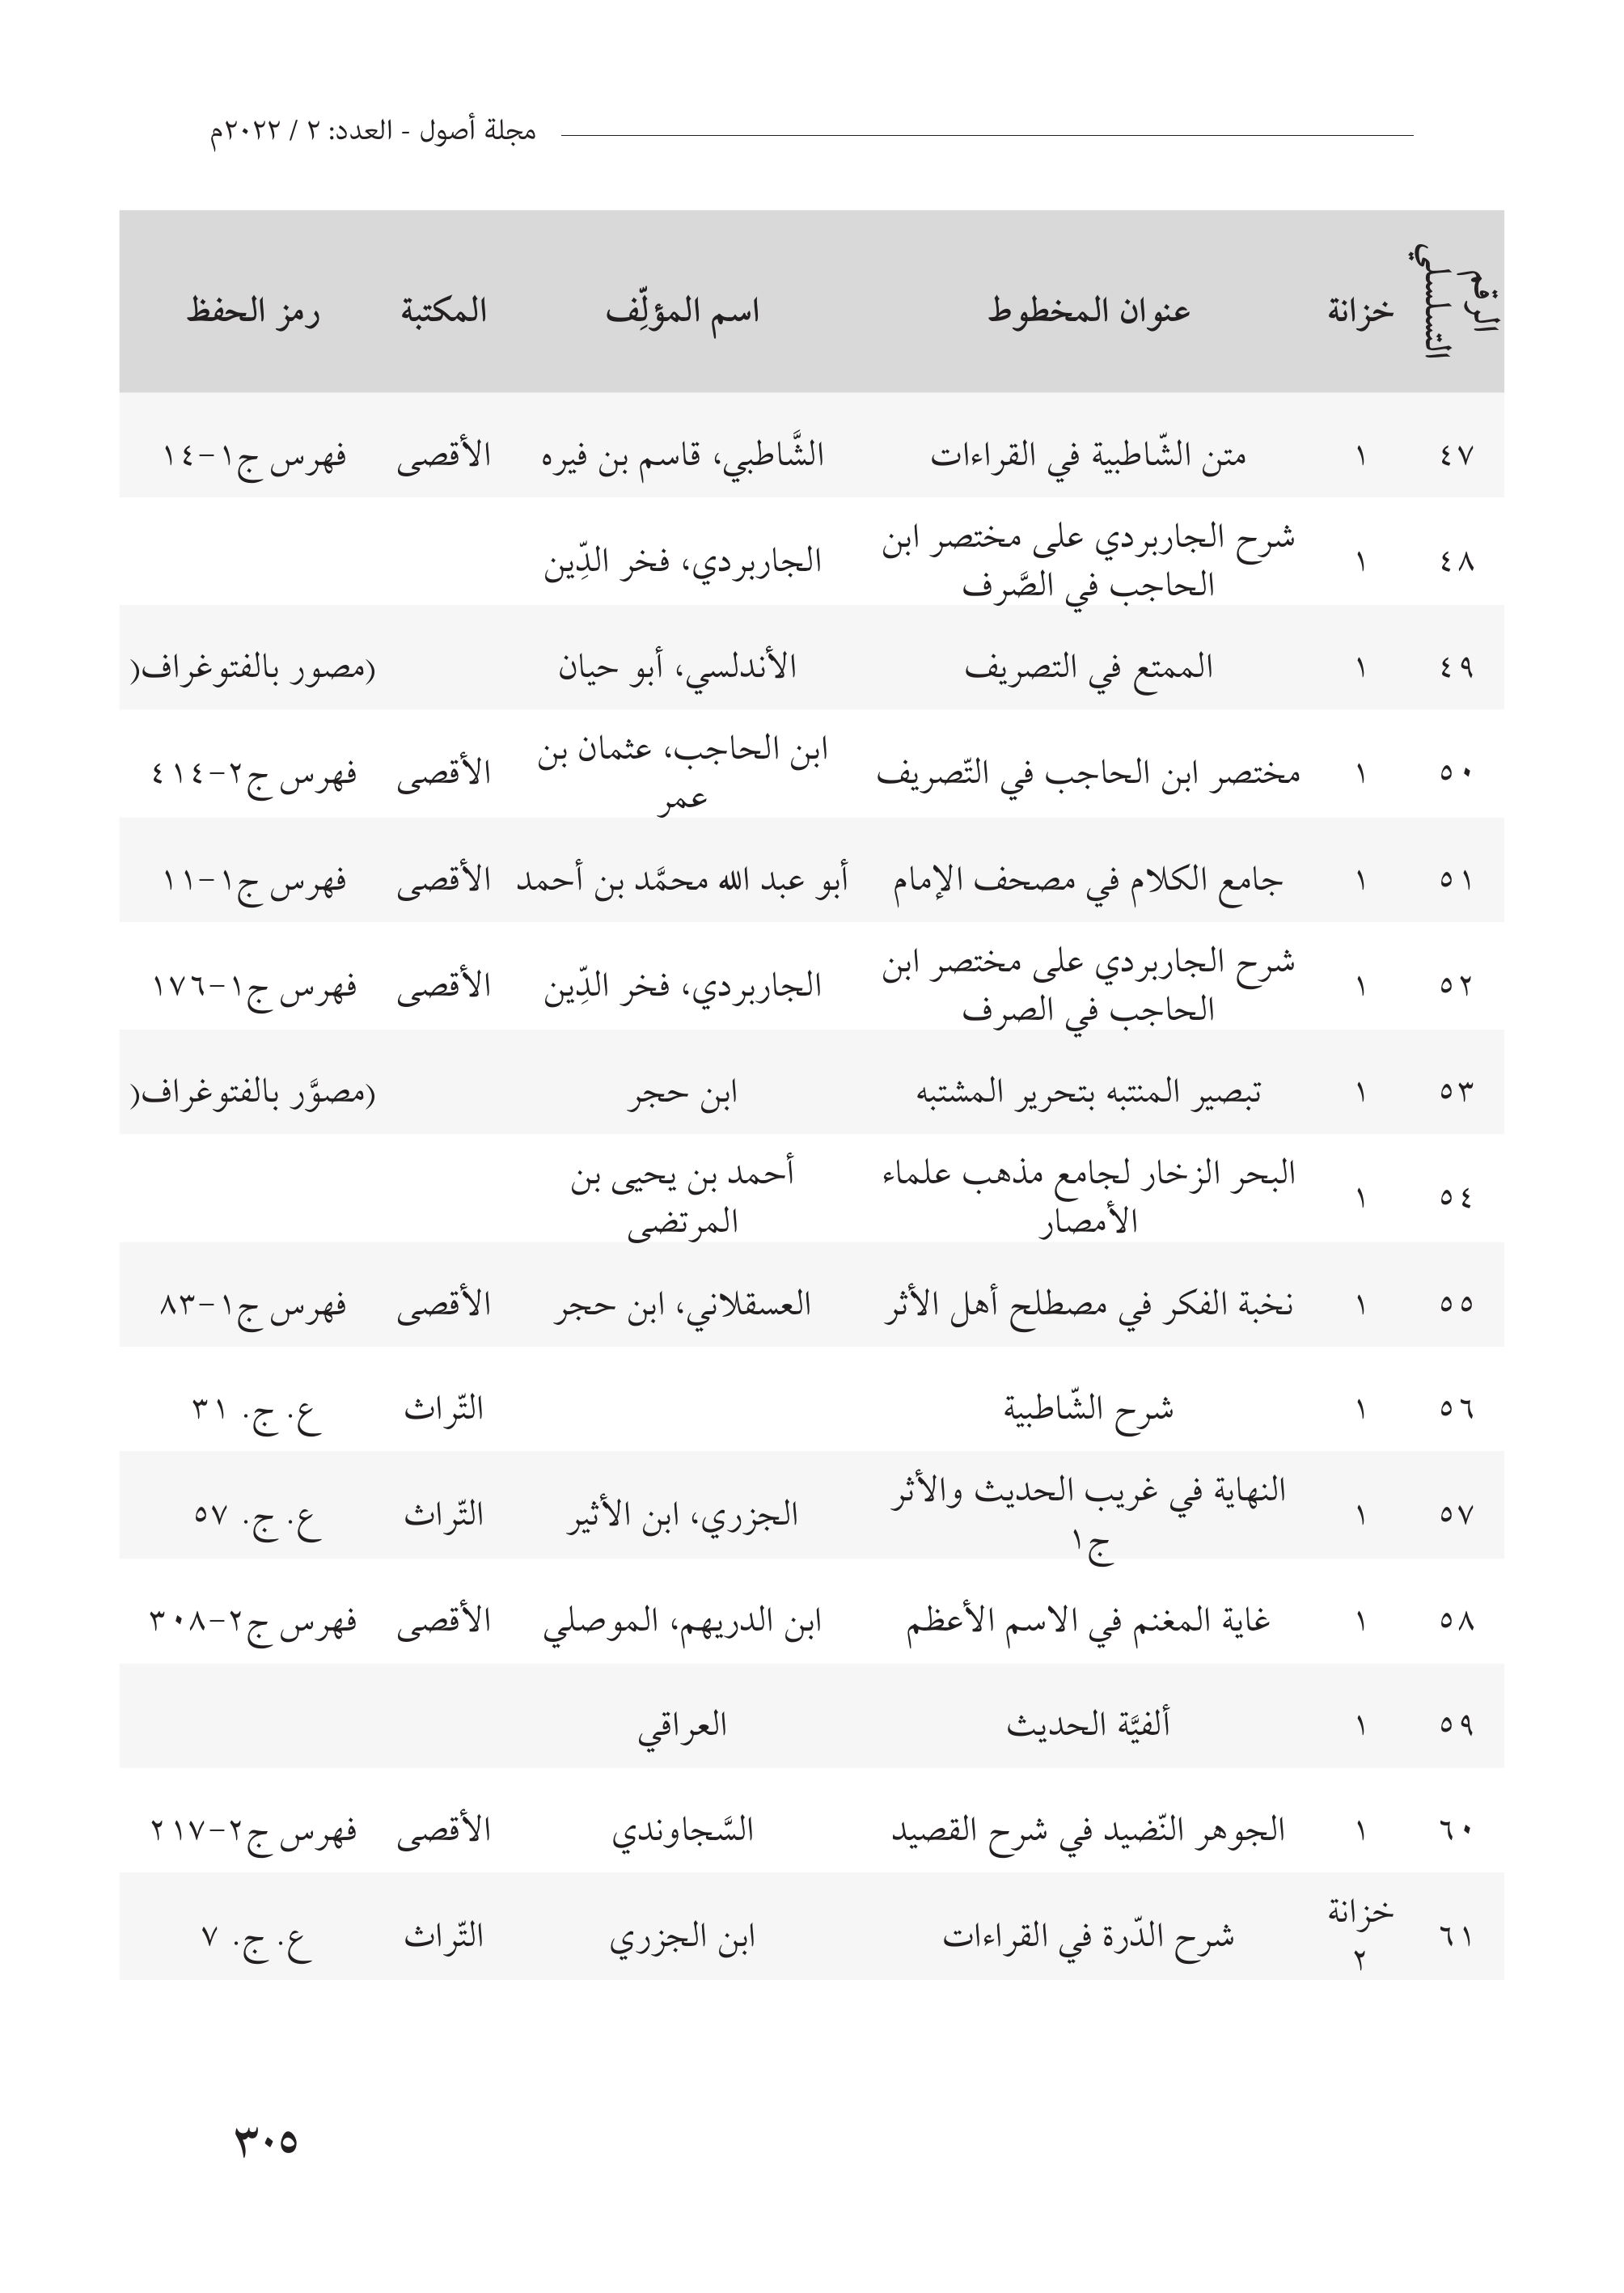 مجلة أصول - العدد: ٢ / ٢٠٢٢م
الرقم التسلسلي خزانة عنوان المخطوط اسم المؤلِّف المكتبة رمز الحفظ
٤٧ ١ متن الشّاطبية في القراءات الشَّاطبي، قاسم بن فيره الأقصى فهرس ج١-١٤
٤٨ ١ شرح الجاربردي على مختصر ابن الحاجب في الصَّرف الجاربردي، فخر الدِّين
٤٩ ١ الممتع في التصريف الأندلسي، أبو حيان (مصور بالفتوغراف(
٥٠ ١ مختصر ابن الحاجب في التّصريف ابن الحاجب، عثمان بن عمر الأقصى فهرس ج٢-٤١٤
٥١ ١ جامع الكلام في مصحف الإمام أبو عبد الله محمَّد بن أحمد الأقصى فهرس ج١-١١
٥٢ ١ شرح الجاربردي على مختصر ابن الحاجب في الصرف الجاربردي، فخر الدِّين الأقصى فهرس ج١-١٧٦
٥٣ ١ تبصير المنتبه بتحرير المشتبه ابن حجر (مصوَّر بالفتوغراف(
٥٤ ١ البحر الزخار لجامع مذهب علماء الأمصار أحمد بن يحيى بن المرتضى
٥٥ ١ نخبة الفكر في مصطلح أهل الأثر العسقلاني، ابن حجر الأقصى فهرس ج١-٨٣
٥٦ ١ شرح الشّاطبية التّراث ع. ج. ٣١
٥٧ ١ النهاية في غريب الحديث والأثر ج١ الجزري، ابن الأثير التّراث ع. ج. ٥٧
٥٨ ١ غاية المغنم في الاسم الأعظم ابن الدريهم، الموصلي الأقصى فهرس ج٢-٣٠٨
٥٩ ١ ألفيَّة الحديث العراقي
٦٠ ١ الجوهر النّضيد في شرح القصيد السَّجاوندي الأقصى فهرس ج٢-٢١٧
٦١ خزانة ٢ شرح الدّرة في القراءات ابن الجزري التّراث ع. ج. ٧
٣٠٥